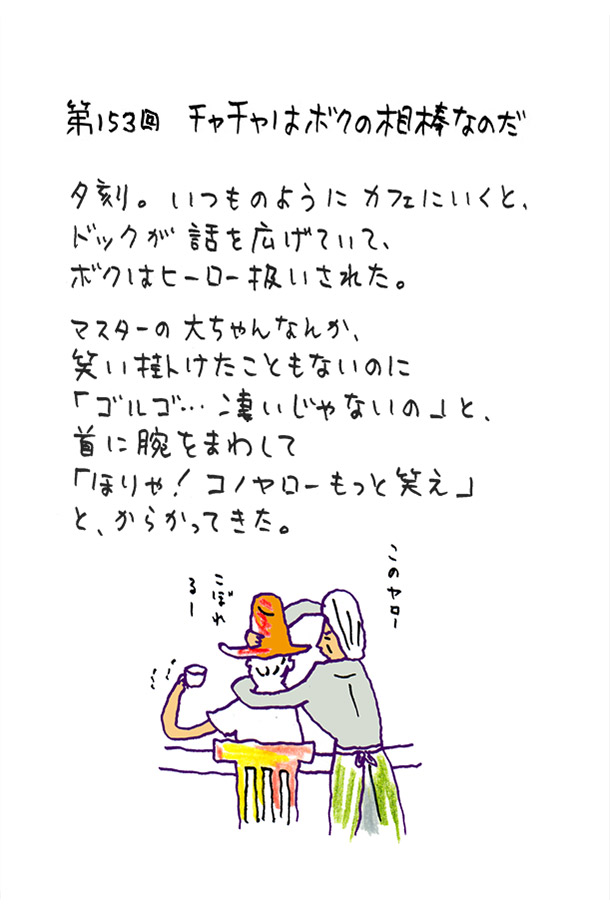 第153回 チャチャはボクの相棒なのだ
夕刻。いつものように カフェにいくと、
ドックが 話を広げていて、
ボクはヒーロー扱いされた。
マスターの 大ちゃんなんか、
笑い掛けたこともないのに
「ゴルゴ… 凄いじゃないの」と、
首に腕をまわして
「ほりゃ! コノヤローもっと笑え」
と、からかってきた。
このヤロー
こぼれ
るー